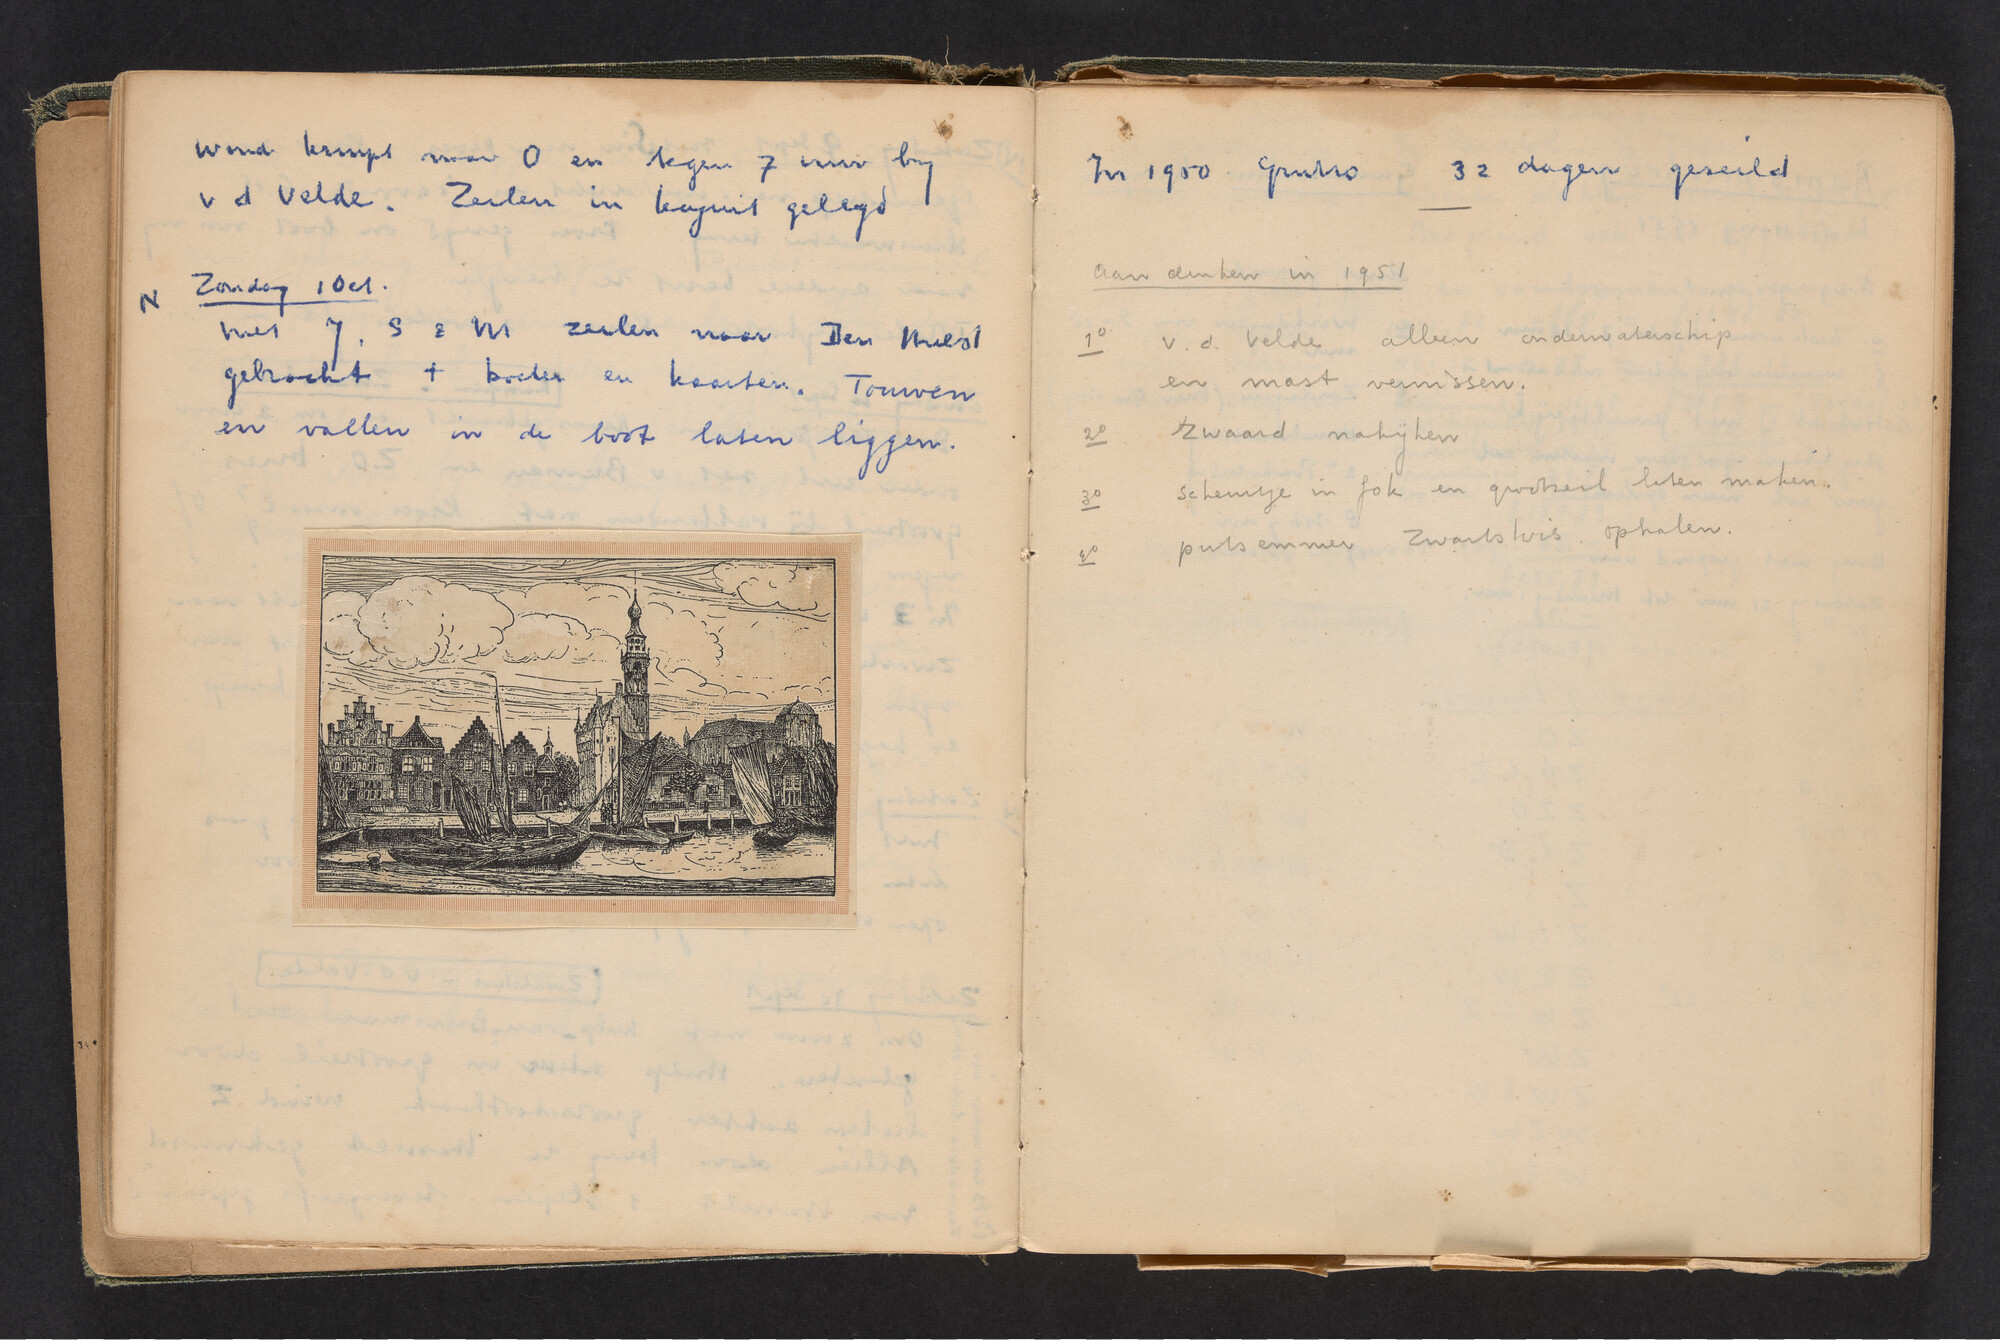 wind krimpt naar O en tegen 7 uur by
v d Velde. Zeilen in kajuit gelegd
N Zondag 1 Oct.
met J, S & M zeilen naar Den Hulst
gebracht + boeken en kaarten. Touwen
en vallen in de boot laten liggen.
In 1950 32 dagen gezeild
aan denken in 1951
1° v. d. Velde alleen onderwaterschip
en mast vernissen.
2° Zwaard nakijken
3° scheurtje in fok en grootzeil laten maken.
4° putsemmer Zwartsluis ophalen.